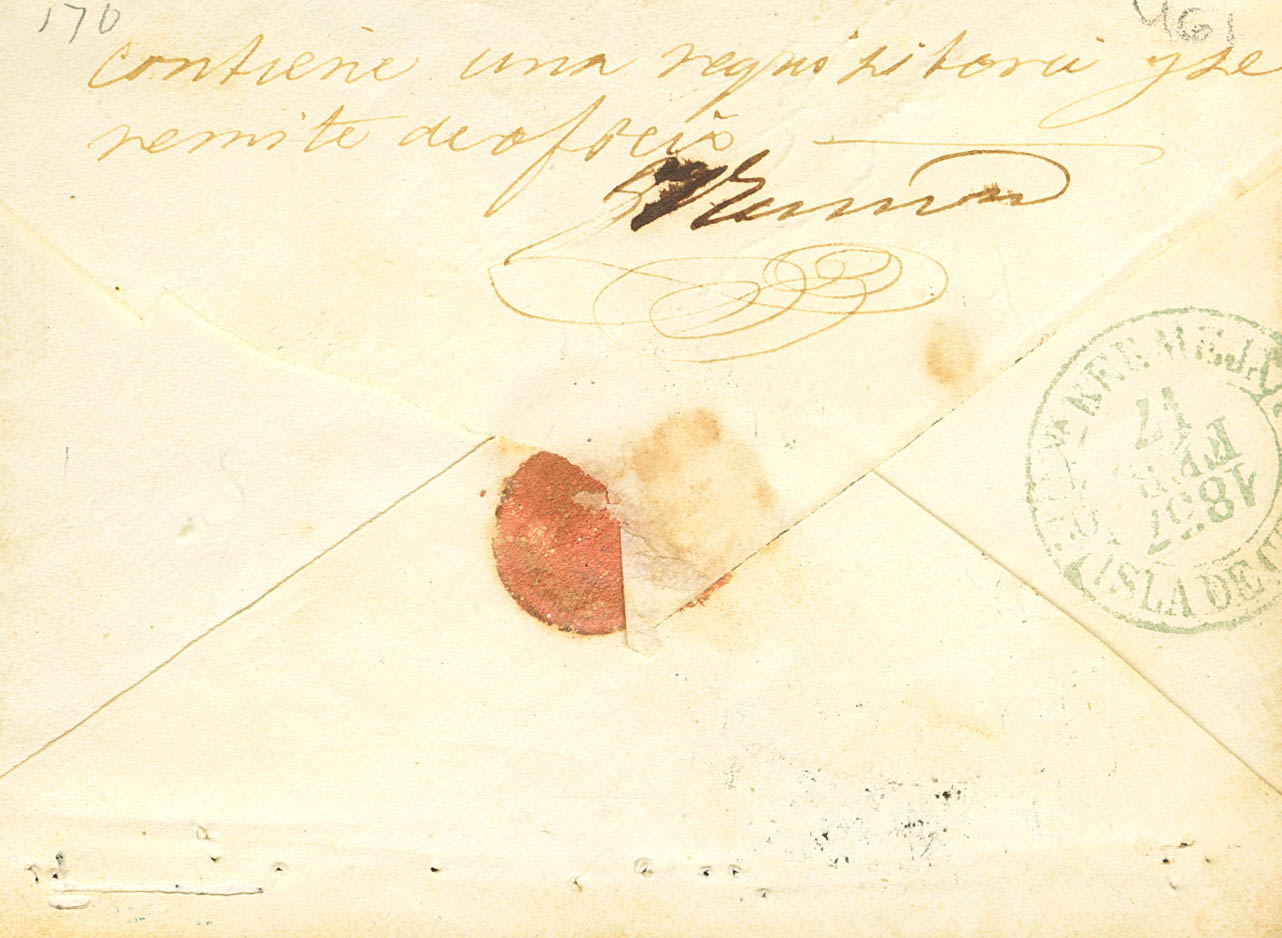 170
461
contiene una requisitoria y se
remite de oficio
17
1857
ISLA DE C